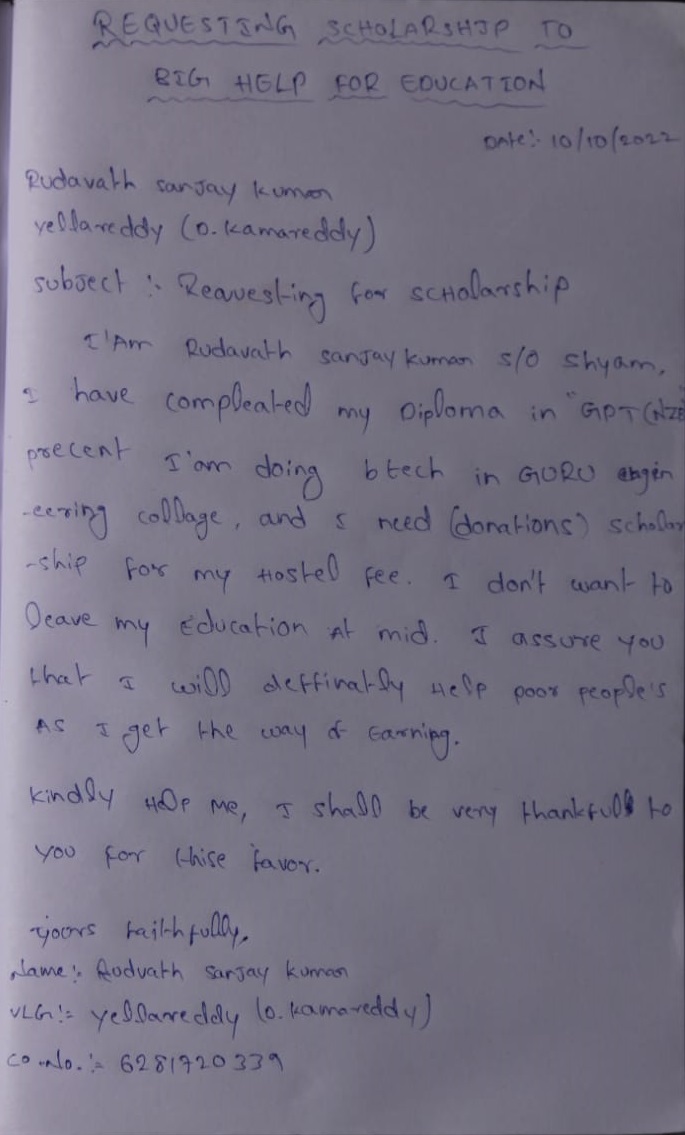 REQUESTING SCHOLARSHIP TO
BIG HELP FOR EDUCATION
DATE:- 10/10/2022
Rudavath sanjay kumar
yellareddy (D. kamareddy)
subject :- Reavesting for scHolarship
I'Am Rudavath sanjay kumar s/o shyam,
I have compleated my Diploma in "GPT (NZB
precent I'am doing btech in GURU engin
-eering collage, and I need (donations) scholar
-ship for my Hostel fee. I don't want to
leave my Education At mid. I assure you
that I will deffinatly Help poor people's
As I get the way of Earning.
kindly Help me, I shall be very thankfull to
you for thise favor.
yours faithfully,
Name:- Rudvath sanjay kumar
VLG:- yellareddy (D. kamareddy)
CO.No.:- 6281720339